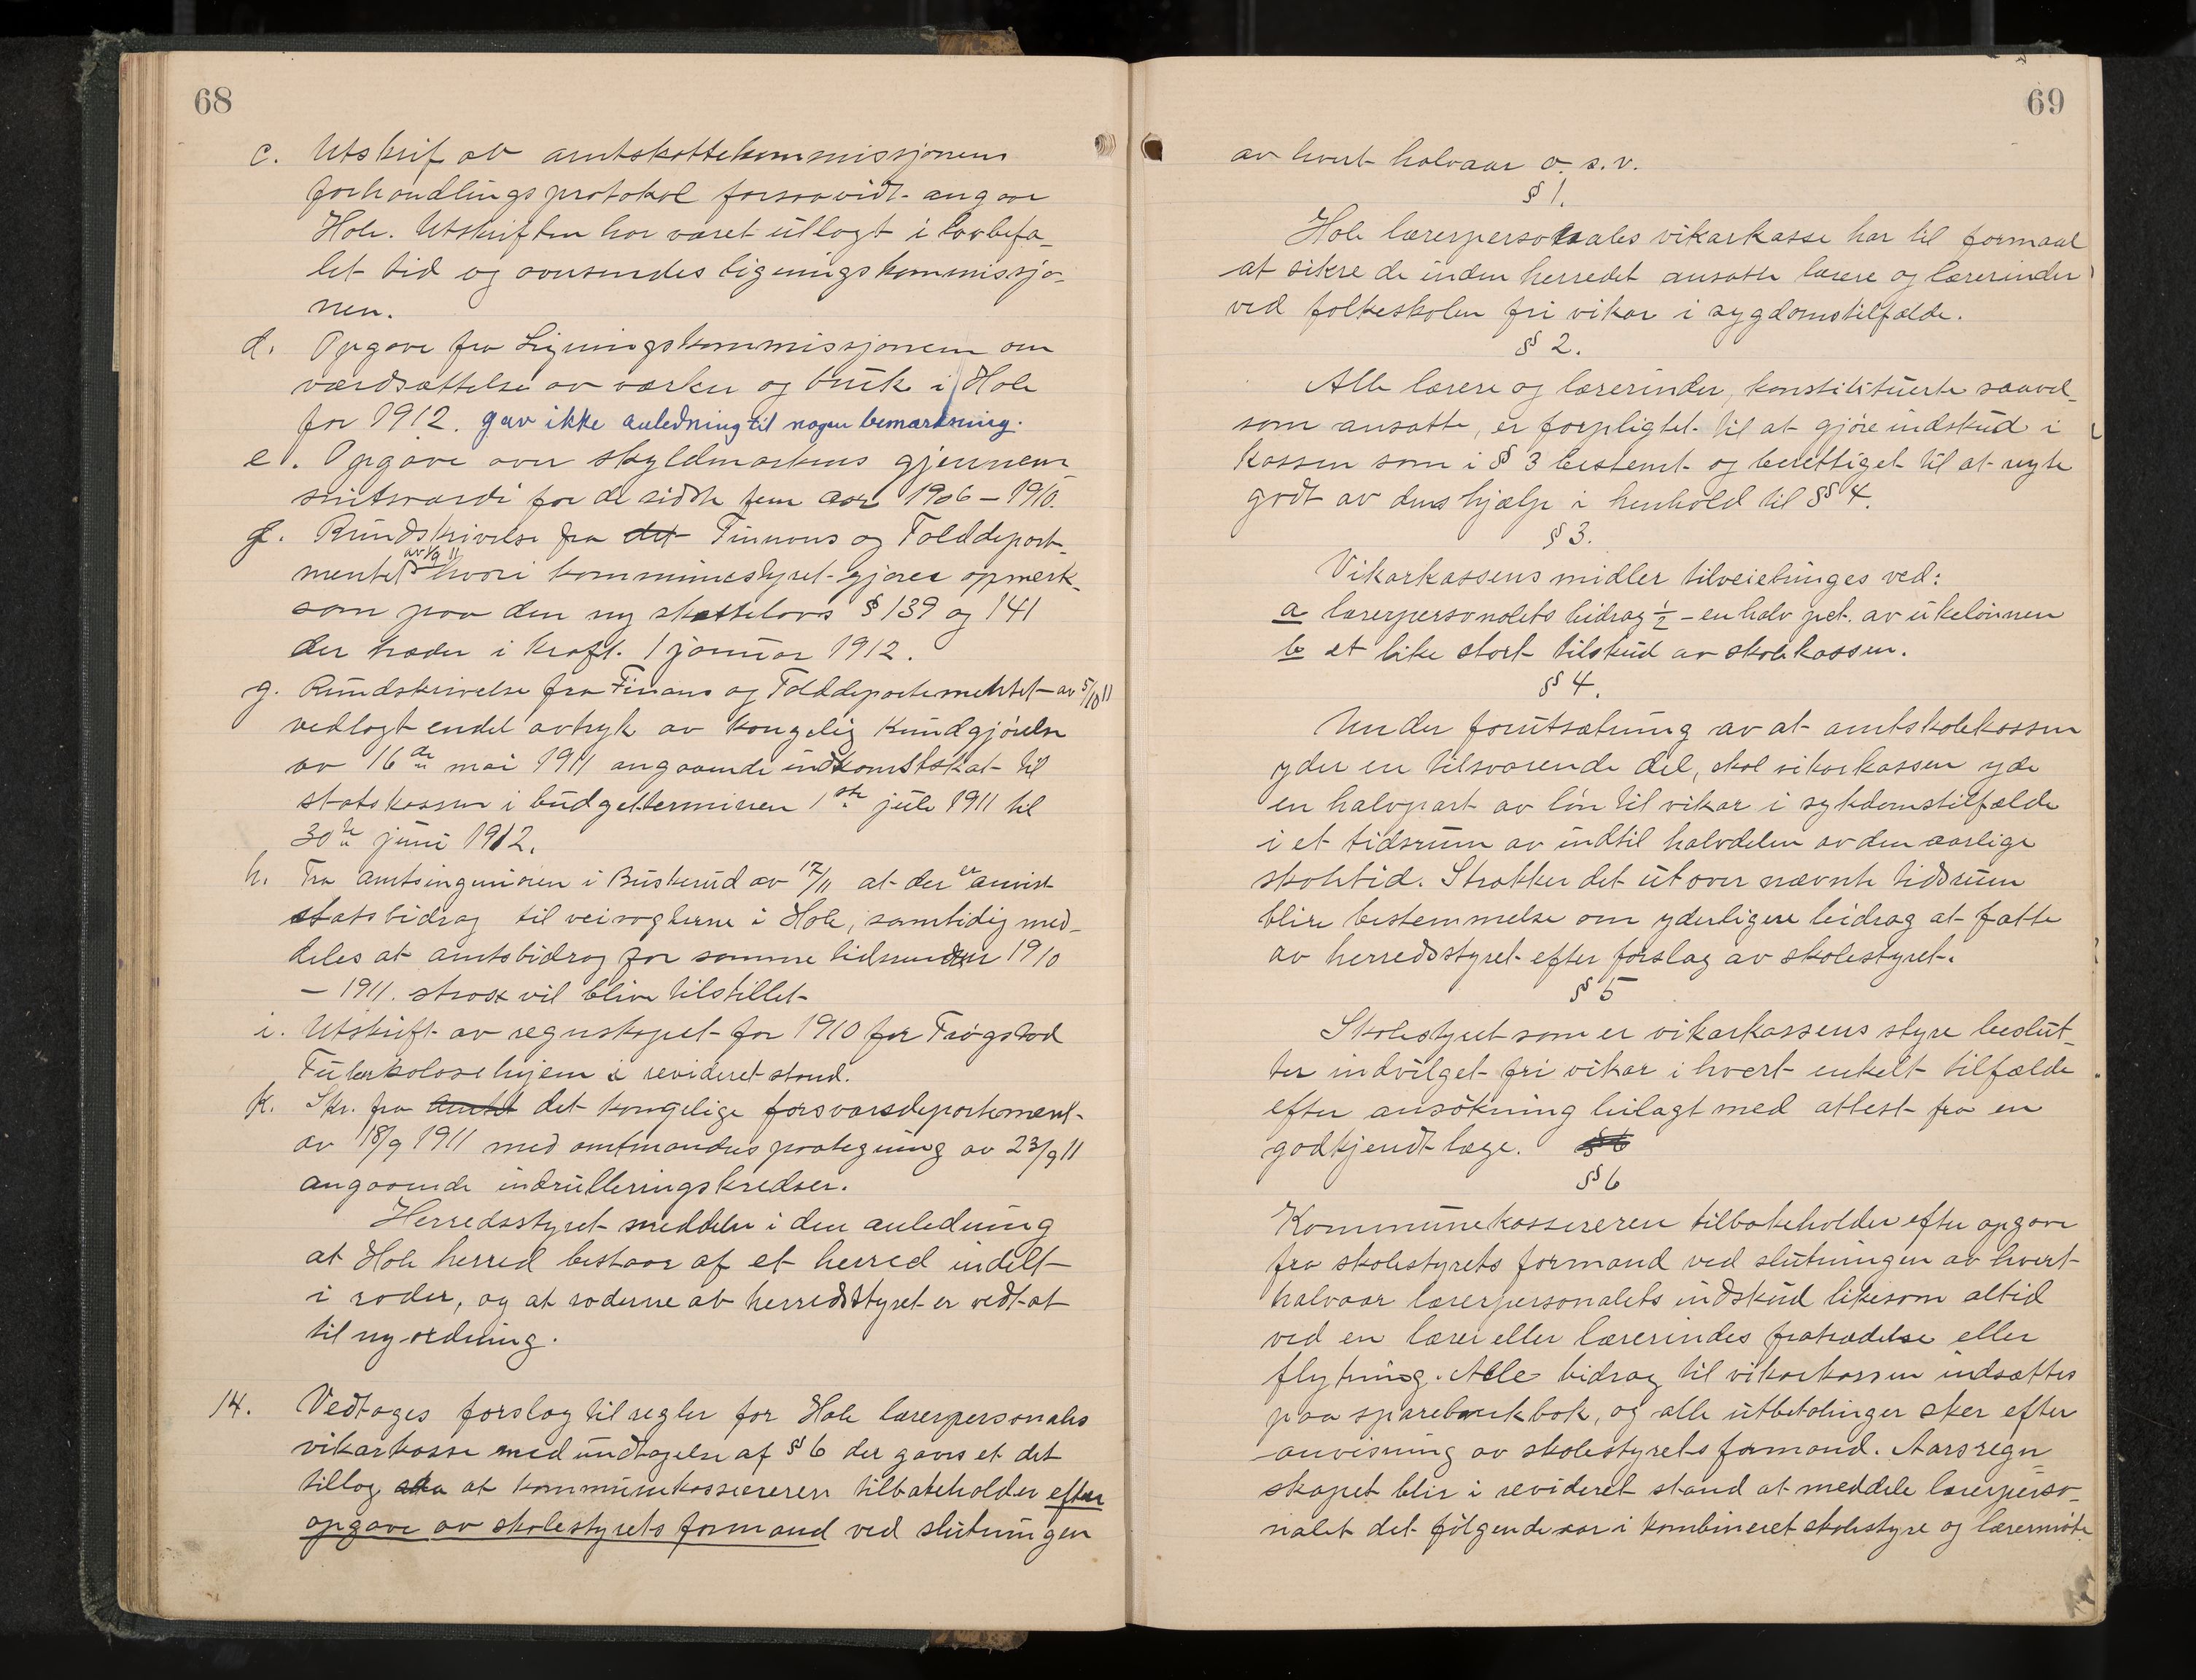 68
c. Utskrif av amtskattekommissjonens
forhandlingsprotokol forsaavidt angaar
Hole. Utskriften har været utlagt i lovbefa-
let tid og oversendes ligningskommissjo-
nen.
d. Opgave fra Ligningskommissjonen om
værdsættelse av værker og bruk i Hole
for 1912. gav ikke anledning til nogen bemærkning.
e. Opgave over skyldmarkens gjennem
snitsværdi for de sidste fem aar 1906–1910.
f. Rundskrivelse fra det Finnans og Tolddepart-
mentet av 1/9 11 hvori kommunestyret gjøres opmerk-
som paa den ny skattelovs § 139 og 141
der træder i kraft 1 januar 1912.
g. Rundskrivelse fra Finans og Tolddepartementet av 5/10 11
vedlagt endel avtryk av kongelig kundgjørelse
av 16de mai 1911 angaaende indkomstskat til
statskassen i budgetterminen 1ste juli 1911 til
30te juni 1912.
h. Fra amtsingeniøren i Buskerud av 17/11 at der er anvist
statsbidrag til veivogterne i Hole, samtidig med-
deles at amtsbidrag for samme tidsrum 1910
– 1911. strax vil blive tilstillet
i. Utskrift av regnskapet for 1910 for Frøgstad
Tuberkolosehjem i revideret stand.
k. Skr. fra Amtet det kongelige forsvarsdepartement
av 18/9 1911 med amtmandens paategning av 23/9 11
angaaende indrulleringskredser.
Herredsstyret meddeler i den anledning
at Hole herred bestaar af et herred indelt
i roder, og at roderne av herredsstyret er vedtat
til ny ordning.
14. Vedtages forslag til regler for Hole lærerpersonales
vikarkasse med undtagelse af § 6 der gaves et det
tillæg at kommunekassereren tilbakeholder efter
opgave av skolestyrets formand ved slutningen
69
av hvert halvaar o. s. v.
§ 1.
Hole lærerpersonales vikarkasse har til formaal
at sikre de inden herredet ansatte lærere og lærerinder
ved folkeskolen fri vikar i sygdomstilfælde.
§ 2.
Alle lærere og lærerinder, konstituerte saavel
som ansatte, er forpligtet til at gjøre indskud i
kassen som i § 3 bestemt og berettiget til at nyte
godt av dens hjælp i henhold til § 4.
§ 3.
Vikarkassens midler tilveiebringes ved:
a lærerpersonalets bidrag ½ – en halv pct. av ukelønnen
b et like stort tilskud av skolekassen.
§ 4.
Under forutsætning av at amtskolekassen
yder en tilsvarende del, skal vikarkassen yde
en halvpart av løn til vikar i sykdomstilfælde
i et tidsrum av indtil halvdelen av den aarlige
skoletid. Strækker det utover nævnte tidsrum
blir bestemmelse om yderligere bidrag at fatte
av herredsstyret efter forslag av skolestyret.
§ 5
Skolestyret som er vikarkassens styre beslut-
ter indvilget fri vikar i hvert enkelt tilfælde
efter ansøkning bilagt med attest fra en
godkjendt læge. § 6
§ 6
Kommunekassereren tilbakeholder efter opgave
fra skolestyrets formand ved slutningen av hvert
halvaar lærerpersonalets indskud likesom altid
ved en lærer eller lærerindes fratrædelse eller
flytning. Alle bidrag til vikarkassen indsættes
paa sparebankbok, og alle utbetalinger sker efter
anvisning av skolestyrets formand. Aarsregn-
skapet blir i revideret stand at meddele lærerperso-
nalet det følgende aar i kombineret skolestyre og lærermøte